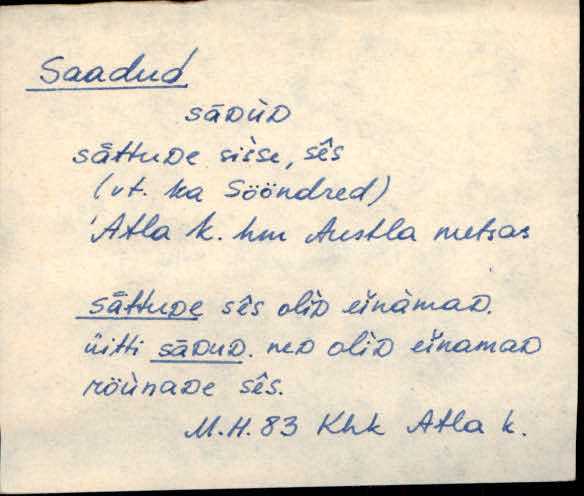 Saadud
sāDùD
sāttuDe sisse, sês
(vt. ka Sööndred)
'Atla k. hm Austla metsas
sāttuDe sês olìD eìnàmaD.
üitti sāDuD. neD olìD eìnamaD
röùnaDe sês.
M.H. 83 Khk Atla k.